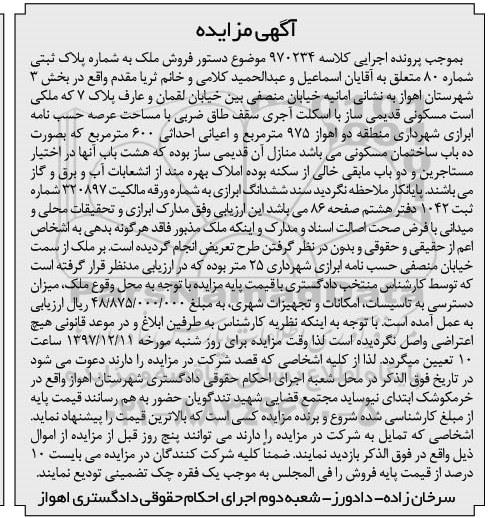 آگهی مزایده
بموجب پرونده اجرایی کلاسه ۹۷۰۲۳۴ موضوع دستور فروش ملک به شماره پلاک ثبتی
شماره ۸۰ متعلق به آقایان اسماعیل و عبدالحمید کلامی و خانم ثریا مقدم واقع در بخش ۳
شهرستان اهواز به نشانی امانیه خیابان منصفی بین خیابان لقمان و عارف پلاک ۷ که ملکی
است مسکونی قدیمی ساز با اسکلت آجری سقف طاق ضربی با مساحت عرصه حسب نامه
ابرازی شهرداری منطقه دو اهواز ۹۷۵ مترمربع و اعیانی احداثی ۶۰۰ مترمربع که بصورت
ده باب ساختمان مسکونی می باشد منازل آن قدیمی ساز بوده که هشت باب آنها در اختیار
مستاجرین و دو باب مابقی خالی از سکنه بوده املاک بهره مند از انشعابات آب و برق و گاز
می باشند. پایانکار ملاحظه نگردید سند ششدانگ ابرازی به شماره ورقه مالکیت ۳۲۰۸۹۷ شماره
ثبت ۱۰۴۲ دفتر هشتم صفحه ۸۶ می باشد این ارزیابی وفق مدارک ابرازی و تحقیقات محلی و
میدانی با فرض صحت اصالت اسناد و مدارک و اینکه ملک مذبور فاقد هرگونه بدهی به اشخاص
اعم از حقیقی و حقوقی و بدون در نظر گرفتن طرح تعریض انجام گردیده است. بر ملک از سمت
خیابان منصفی حسب نامه ابرازی شهرداری ۲۵ متر بوده که در ارزیابی مدنظر قرار گرفته است
که توسط کارشناس منتخب دادگستری با قیمت پایه مزایده با توجه به محل وقوع ملک، میزان
دسترسی به تاسیسات، امکانات و تجهیزات شهری، به مبلغ ۴۸/۸۷۵/۰۰۰/۰۰۰ ریال ارزیابی
به عمل آمده است. با توجه به اینکه نظریه کارشناس به طرفین ابلاغ و در موعد قانونی هیچ
اعتراضی واصل نگردیده است لذا وقت مزایده برای روز شنبه مورخه ۱۳۹۷/۱۲/۱۱ ساعت
۱۰ تعیین میگردد. لذا از کلیه اشخاصی که قصد شرکت در مزایده را دارند دعوت می شود
در تاریخ فوق الذکر در محل شعبه اجرای احکام حقوقی دادگستری شهرستان اهواز واقع در
خرمکوشک ابتدای نیوساید مجتمع قضایی شهید تندگویان حضور به هم رسانند قیمت پایه
از مبلغ کارشناسی شده شروع و برنده مزایده کسی است که بالاترین قیمت را پیشنهاد نماید.
اشخاصی که تمایل به شرکت در مزایده را دارند می توانند پنج روز قبل از مزایده از اموال
ذیل واقع در فوق الذکر بازدید نمایند. ضمنا کلیه شرکت کنندگان در مزایده می بایست ۱۰
درصد از قیمت پایه فروش را فی المجلس به موجب یک فقره چک تضمینی تودیع نمایند.
سرخان زاده- دادورز- شعبه دوم اجرای احکام حقوقی دادگستری اهواز